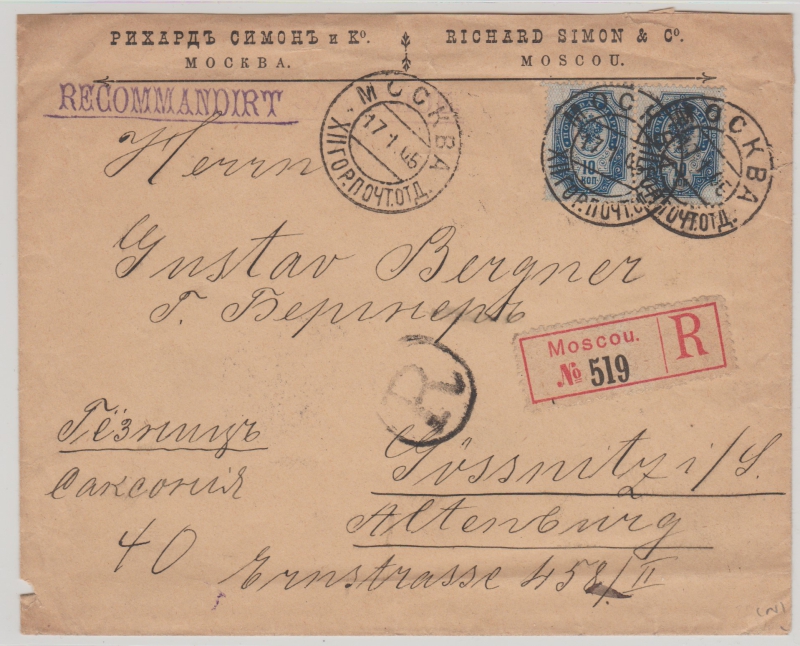 РИХАРДЪ СИМОНЪ и Кº.
МОСКВА.
RICHARD SIMON & Cº.
MOSCOU.
RECOMMANDIRT
МОСКВА
17.1.05
XII ГОР.ПОЧТ.ОТД.
10
КОП
МОСКВА
XII ГОР.ПОЧТ.
МОСКВА
ПОЧТ.ОТД.
Herrn
Gustav Bergner
Г. Бергнеръ
Moscou.
№ 519
R
R
Гёзницъ
Саксонія
40
Gössnitz i/S.
Altenburg
Ernstrasse 458/II
(N)